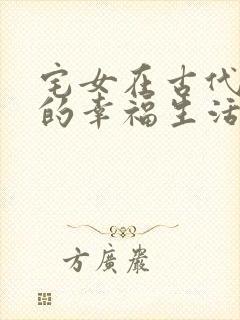 宅女在古代
的幸福生活
方廣巖